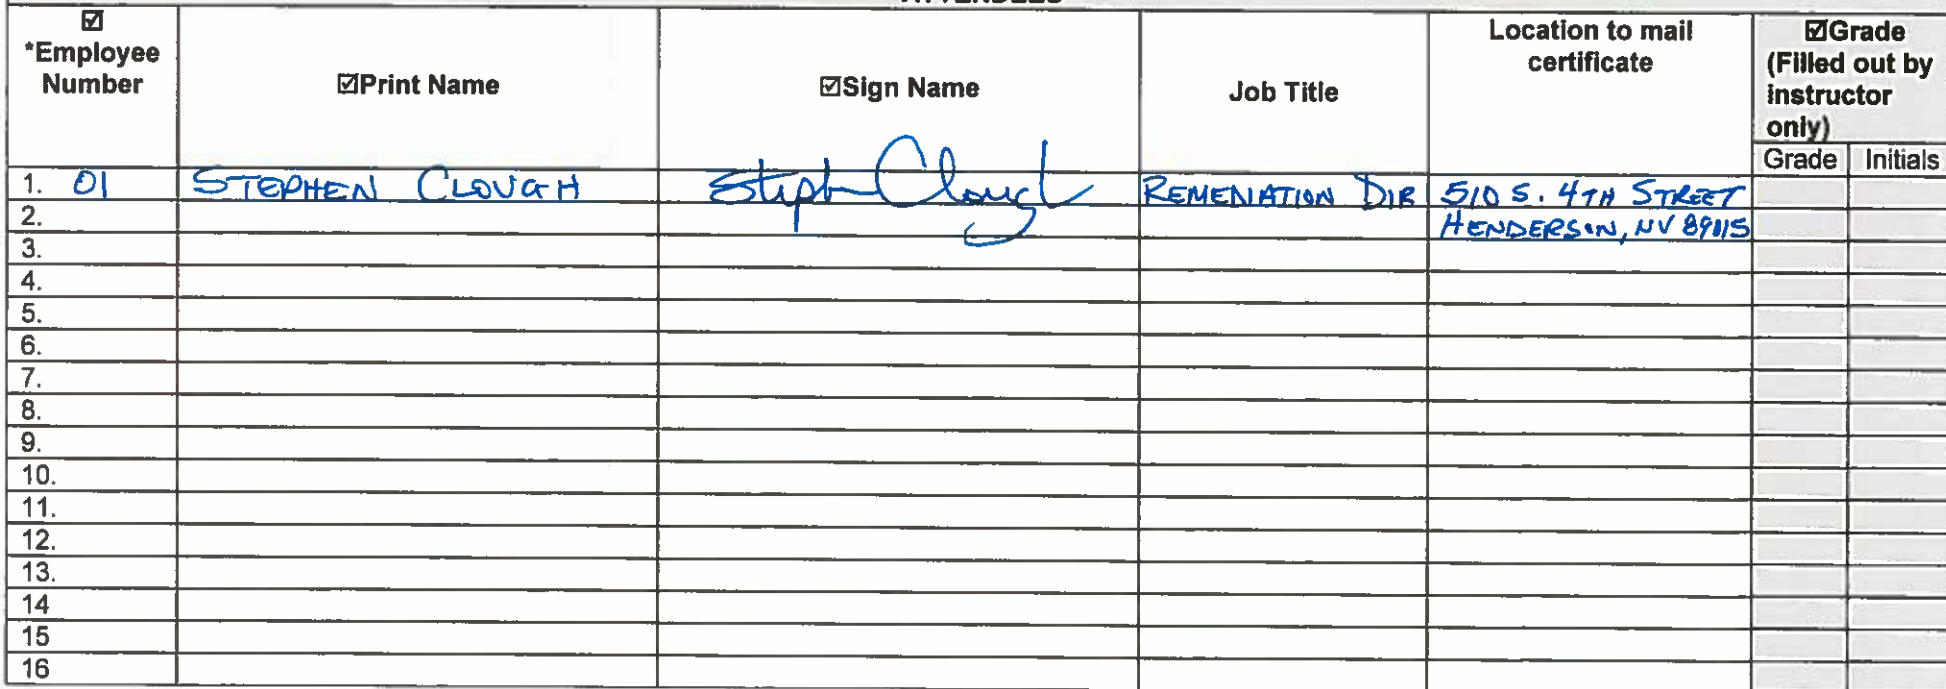 ☑
*Employee
Number
☑Print Name
☑Sign Name
Job Title
Location to mail
certificate
☑Grade
(Filled out by
instructor
only)
Grade Initials
1. 01 STEPHEN CLOUGH Stephen Clough REMEDIATION DIR 510 S. 4TH STREET
2. HENDERSON, NV 89115
3.
4.
5.
6.
7.
8.
9.
10.
11.
12.
13.
14
15
16